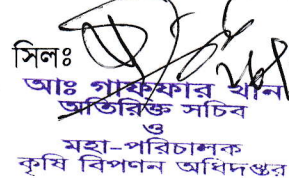 সিলঃ
আঃ গাফফার খান
অতিরিক্ত সচিব
ও
মহা-পরিচালক
কৃষি বিপণন অধিদপ্তর